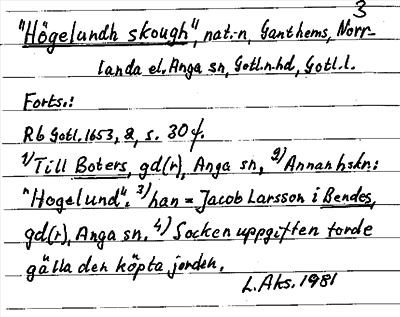 3
"Högelundh skough", nat.-n, Ganthems, Norr-
landa el. Anga sn, Gotl.n.hd, Gotl.l.
Forts.:
Rb Gotl. 1653, 2, s. 30 f.
1) Till Boters, gd(r), Anga sn, 2) Annan hskn:
"Hogelund". 3) han = Jacob Larsson i Bendes,
gd(r), Anga sn. 4) Sockenuppgiften torde
gälla den köpta jorden.
L. Aks. 1981